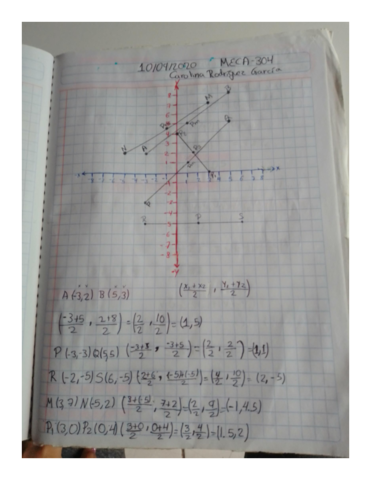 10/04/2020 MECA-304
Carolina Rodriguez Garcia
A(-3,2) B(5,3) (x₁+x₂/2, y₁+y₂/2)
(-3+5/2, 2+8/2)=(2/2, 10/2)=(1,5)
P(-3,-3) Q(5,5) (-3+5/2, -3+5/2)=(2/2, 2/2)=(1,1)
R(-2,-5) S(6,-5) =(4/2, 10/2)=(2,-5)
M(3,7) N(-5,2) (3+(-5)/2, 7+2/2)=(2/2, 9/2)=(-1,4.5)
P₁(3,0) P₂(0,4) (3+0/2, 0+4/2)=(3/2, 4/2)=(1.5,2)